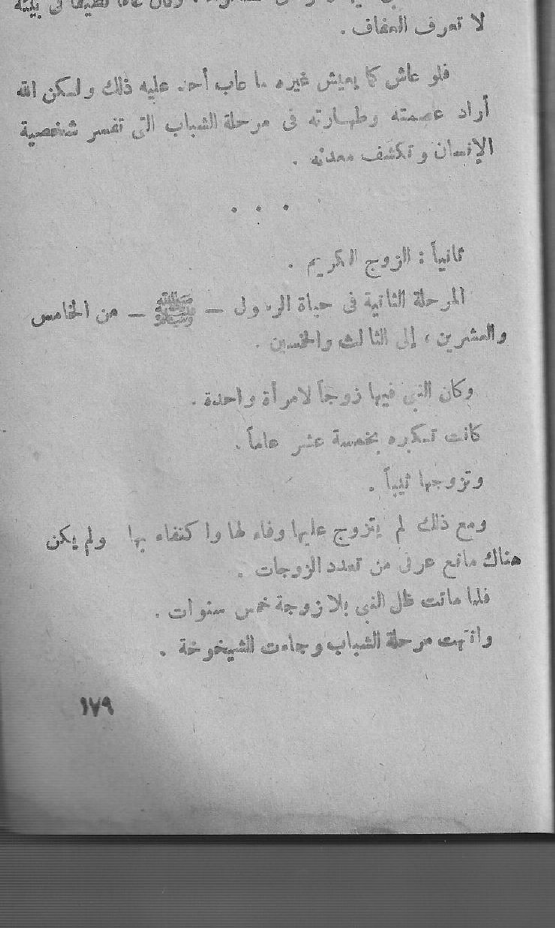 لا تعرف العفاف .
فلو عاش كما يعيش غيره ما عاب أحد عليه ذلك ولكن الله
أراد عصمته وطهارته فى مرحلة الشباب التى تفسر شخصية
الإنسان وتكشف معدنه .
. . .
ثانياً : الزوج الكريم .
المرحلة الثانية فى حياة الرسول – ﷺ – من الخامس
والعشرين ، إلى الثالث والخمسين .
وكان النبى فيها زوجاً لامرأة واحدة .
كانت تكبره بخمسة عشر عاماً .
وتزوجها ثيباً .
ومع ذلك لم يتزوج عليها وفاء لها واكتفاء بها ولم يكن
هناك مانع عرفى من تعدد الزوجات .
فلما ماتت ظل النبى بلا زوجة خمس سنوات .
وانتهت مرحلة الشباب وجاءت الشيخوخة .
١٧٩